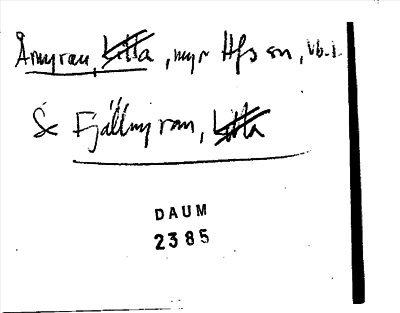 Åmyran, Litla, myr Hfs sn, Vb.l.
Se Fjällmyran, Litla
DAUM
2385